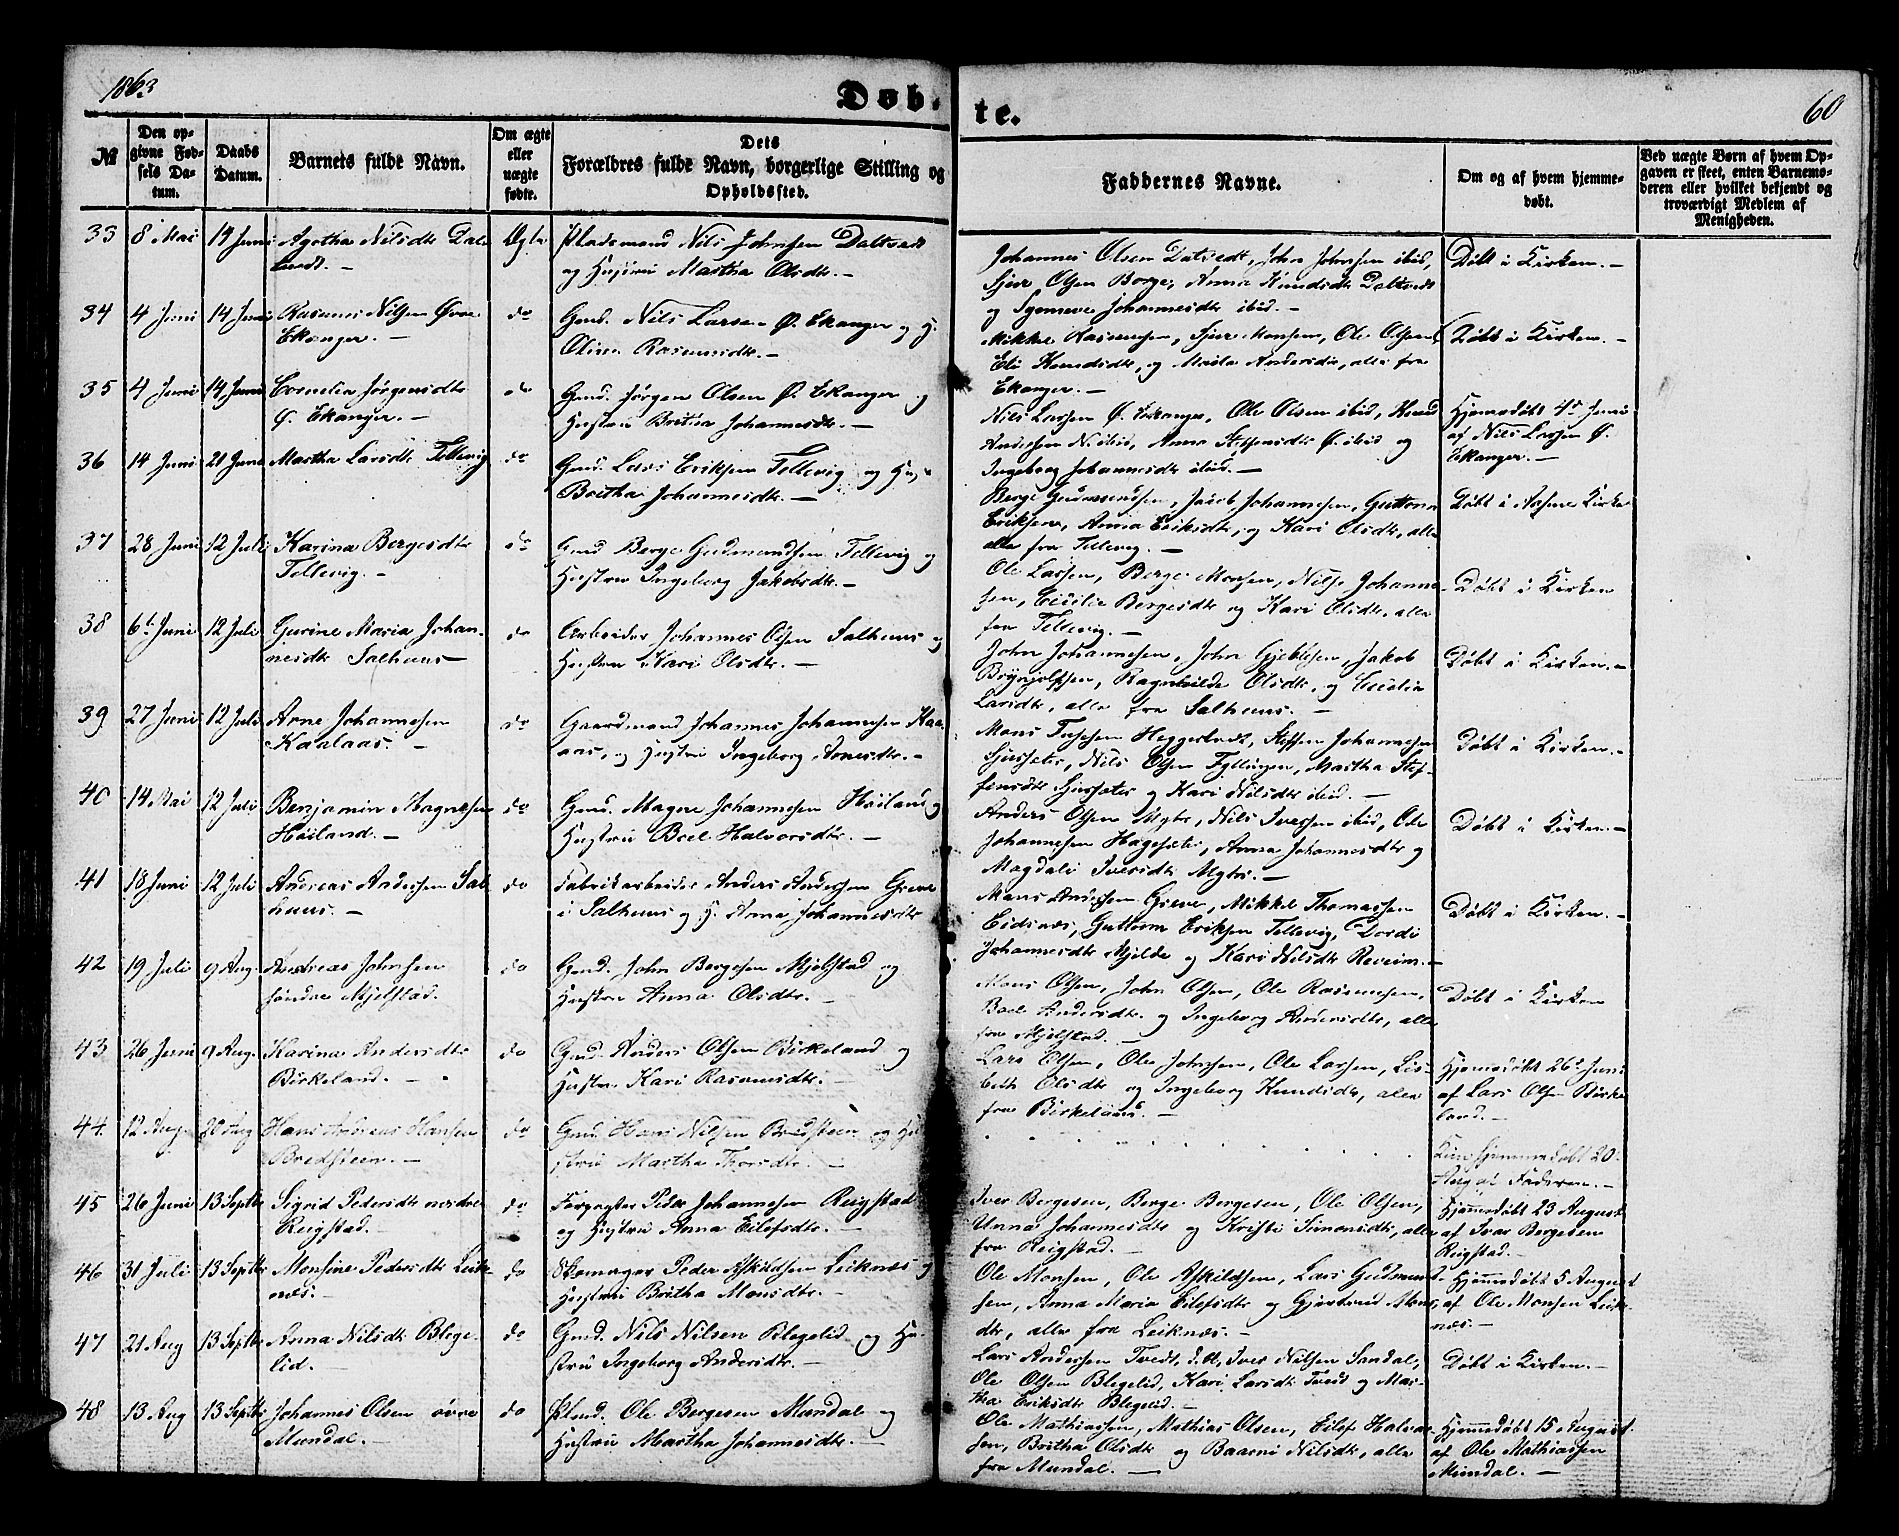 1863
Døb- te.
60
№
Den opgivne Fødsels Datum.
Daabs Datum.
Barnets fulde Navn.
Om ægte eller uægte fødte.
Dets Forældres fulde Navn, borgerlige Stilling og Opholdssted.
Faddernes Navne.
Om og af hvem hjemmedøbt.
Ved uægte Børn af hvem Opgaven er skeet, enten Barnemoderen eller hvilket bekjendt og troværdigt Medlem af Menigheden.
33 8 Mai 14 Juni Agatha Nilsdtr Dal- Ægte Pladsmand Nils Johnsen Daltvedt
tvedt. — og Hustru Martha Olsdtr. —
Johannes Olsen Daltvedt, John Johnsen ibid, Døbt i Kirken. —
Sjur Olsen Borge, Anna Knudsdtr Daltvedt
og Synneve Johannesdtr ibid. —
34 4 Juni 14 Juni Rasmus Nilsen Øvre do Gmd. Nils Larsen Ø. Ekanger og H.
Ekanger. — Oline Rasmusdtr. —
Mikkel Rasmussen, Sjur Monsen, Ole Olsen, Døbt i Kirken. —
Eli Knudsdtr, og Andersdtr, alle fra
Ekanger. —
35 4 Juni 14 Juni Cornelia Jørgensdtr do Gmd. Jørgen Olsen Ø. Ekanger og
Ø. Ekanger. — Hustru Britha Johannesdtr. —
Nils Larsen Ø. Ekanger, Ole Olsen ibid, Knud Hjemmedøbt 4de Juni
Andersen N. ibid, Anna Ø. ibid og af Nils Larsen Ø.
Ingeborg Johannesdtr ibid. — Ekanger. —
36 14 Juni 21 Juni Martha Larsdtr Tellevig do Gmd. Lars Eriksen Tellevig og Hu-
Britha Johannesdtr. —
Berge Gudmundsen, Jacob Johannesen, Guttorm Døbt i Kirke
Eriksen, Anna Eriksdtr, og Kari Olsdtr, alle
alle fra Tellevig. —
37 28 Juni 12 Juli Karina Bergesdtr do Gmd Berge Gudmundsen Tellevig og
Tellevig. — Hustru Ingeborg Jakobsdtr. —
Ole Larsen, Berge Monsen, Nils Johanne- Døbt i Kirken
sen, Cicilie Bergesdtr og Kari Olsdtr, alle
fra Tellevig. —
38 6te Juni 12 Juli Gurine Maria Johan- do Arbeider Johannes Olsen Salhuus og
nesdtr Salhuus — Hustru Kari Olsdtr. —
John Johannesen, John Gjeblesen, Jakob Døbt i Kirken. —
Brynjolfsen, Ragnhilde Olsdtr, og Cecilia
Larsdtr, alle fra Salhuus. —
39 27 Juni 12 Juli Arne Johannesen do Gaardmand Johannes Johannesen Kaa-
Kaalaas. — aas, og Hustru Ingeborg Arnesdtr. —
Mons Heggertvedt, Steffen Johannesen Døbt i Kirken. —
Sjursæter, Nils Olsen Fyllingen, Martha Stef-
fensdtr Sjursæter og Kari Nilsdtr ibid. —
40 14 Mai 12 Juli Benjamin Magnesen do Gmd. Magne Johannesen Høiland og
Høiland. — Hustru Boel Halvorsdtr. —
Anders Olsen Myhr, Nils Iversen ibid, Ole Døbt i Kirken. —
Johannesen Hagesæter, Anna Johannesdtr og
Magdali Iversdtr Myhr. —
41 18 Juni 12 Juli Andreas Andersen Sal- do Fabrikarbeider Anders Andersen Greve
huus. — i Salhuus og H. Anna Johannesdtr
Mons Andersen Greve, Mikkel Thomassen Døbt i Kirken. —
Eidsnæs, Guttorm Eriksen Tellevig, Dordi
Johannesdtr Mjelde og Kari Nilsdtr Reveim. —
42 19 Juli 9 Aug. Andreas Johnsen do Gmd. John Bergesen Mjelstad og
søndre Mjelstad. Hustru Anna Olsdtr. —
Mons Olsen, John Olsen, Ole Rasmussen, Døbt i Kirken
Boel Andersdtr. og Ingeborg Andersdtr, alle
fra Mjelstad. —
43 26 Juni 9 Aug. Karina Andersdtr do Gmd. Anders Olsen Birkeland og
Birkeland. — Hustru Kari Rasmusdtr. —
Lars Olsen, Ole Johnsen, Ole Larsen, Lis- Hjemmedøbt 26de Juni
beth Olsdtr og Ingeborg Knudsdtr, alle af Lars Olsen Birke
fra Birkeland. — land. —
44. 12 Aug. 20 Aug Hans Andreas Hansen do Gmd. Hans Nilsen Bredsteen og Hu
Bredsteen. — stru Martha Thorsdtr. —
Kun hjemmedøbt 20.
Aug af Faderen. —
45 26 Juni 13 Septbr Sigrid Pedersdtr nordre do Forpagter Peder Johannesen Reigstad
Reigstad. — og Hustru Anna Eilefsdtr. —
Iver Bergesen, Berge Bergesen, Ole Olsen, Hjemmedøbt 23 August
Unna Johannesdtr og Kristi Simonsdtr, alle af Iver Bergesen
fra Reigstad. — Reigstad. —
46 31 Juli 13 Septbr Monsine Pedersdtr Leik- do Skomager Peder Askildsen Leiknæs og
næs. — Hustru Britha Monsdtr. —
Ole Monsen, Ole Askildsen, Lars Gudmund- Hjemmedøbt 5 August
sen, Anna Maria Eilefsdtr og Gjertrud Mons, af Ole Monsen Leik-
dtr, alle fra Leiknæs. — næs. —
47 21 Aug 13 Septbr Anna Nilsdtr Blege- do Gmd. Nils Nilsen Blegelid og Hu-
lid. — stru Ingeborg Andersdtr. —
Lars Andersen Tvedt, Iver Nilsen Sandal, Døbt i Kirken. —
Ole Olsen Blegelid, Kari Larsdtr Tvedt og Mar-
tha Eriksdtr Blegelid. —
48 13 Aug 13 Septbr Johannes Olsen øvre do Plmd. Ole Bergesen Mundal og
Mundal. — Hustru Martha Johannesdtr. —
Ole Mathiassen, Mathias Olsen, Eilef Halvor- Hjemmedøbt 15 August.
sen, Britha Olsdtr og Baarni Nilsdtr, alle af Ole Mathiassen
fra Mundal. — Mundal. —